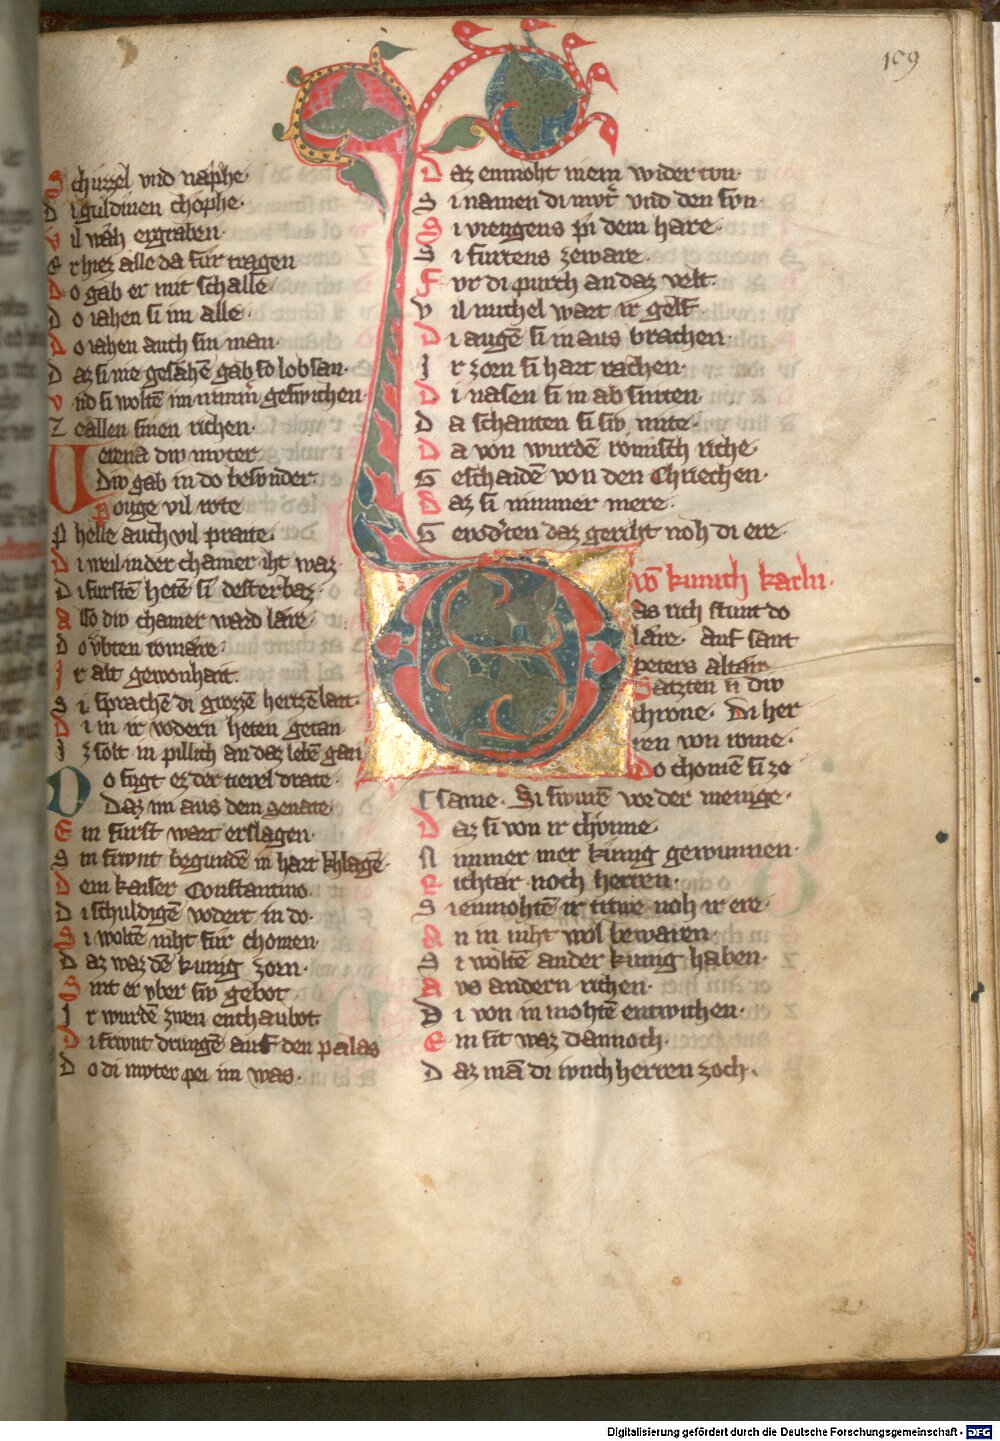 109
Schuzzel vnd naphe·
Di guldinen chophe·
vil wæh ergraben·
Er hiez alle da fur tragen
Do gab er mit schalle·
Do iahen si im alle·
Do iahen auch sin man·
Daz si nie gesahē gab so lobsan·
vnd si woltē im nimm̄ geswichen·
Ze allen sinen richen·
Verena diw mvter
Diw gab in do besvnder·
Pouge vil rote
Phelle auch vil praite·
Di weil in der chamer iht waz
Di furstē hetē si dester baz·
Also diw chamer ward lære·
Do vbten romære·
Ir alt gewonhait·
Si sprachē di grozzē hertzēlait·
Di in ir vodern heten getan
Iz solt in pillich an daz lebē gan
Do fugt ez der tievel drate·
Daz im aus dem genate·
Ein furst wart erslagen·
Sin frivnt begundē in hart chlagē·
Dem kaiser Constantino·
Di schuldigē vodert in do·
Si woltē niht fur chomen·
Daz waz dē kunig zorn·
Sint er vber siv gebot
Ir wurdē zwen enthaubot·
Di frivnt drungē auf den palas
Do di mvter pei im was·
Daz enmoht niem widertun·
Si namen di mvt̄ vnd den svn·
Si viengens pi dem hare·
Si furtens zeware·
Fvr di purch an daz velt·
Vil michel wart ir gelf·
Di augē si in aus brachen
Ir zorn si hart rachen·
Di nasen si in ab sniten·
Da schanten si siv mite·
Da von wurdē romisch riche·
Geschaidē von den Chriechen·
Daz si nimmer mere·
Gevodten daz geriht noh di ere·
Vō kunich karln·
Das rich stunt do
lære· Auf sant
peters altair
Satzten si diw
chrone· Di her
ren von rome·
Do chomē si ze
same· Si swurē vor der menige·
Daz si von ir chvnne·
Nimmer mer kunig gewunnen·
Richtar noch herren·
Si enmohtē ir triwe noh ir ere·
An in niht wol bewaren·
Si woltē ander kunig haben·
Avs andern richen·
Di von in mohtē entwichen·
Ein sit waz dannoch·
Daz mā di ivnchherren zoch·
Digitalisierung gefördert durch die Deutsche Forschungsgemeinschaft - DFG